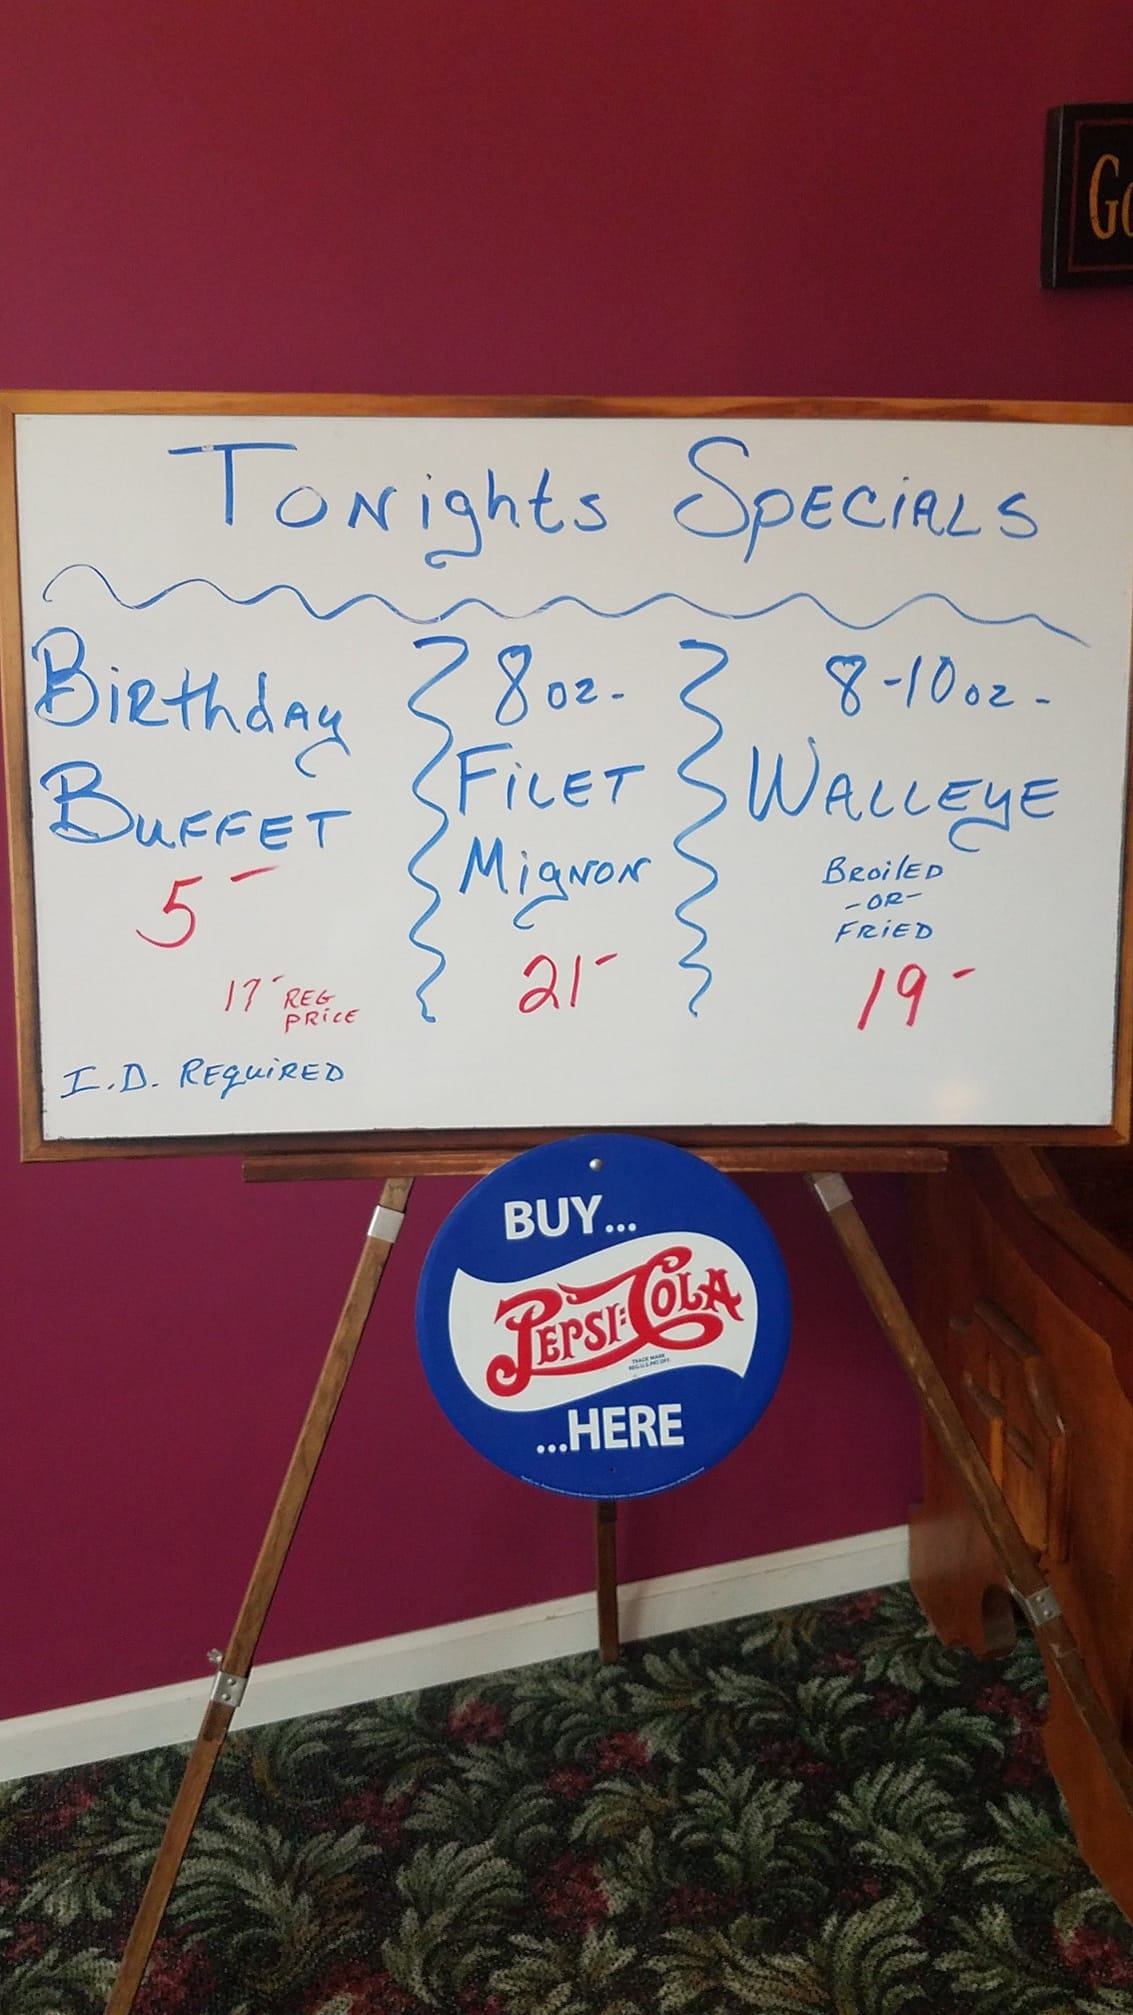 Go
Tonights Specials
Birthday
Buffet
5-
17- REG
PRICE
I.D. REQUIRED
8 oz-
FILET
Mignon
21-
8-10 oz-
WALLEYE
BROILED
-OR-
FRIED
19-
BUY...
PEPSI:COLA
TRADE MARK
REG.U.S.PAT.OFF.
...HERE